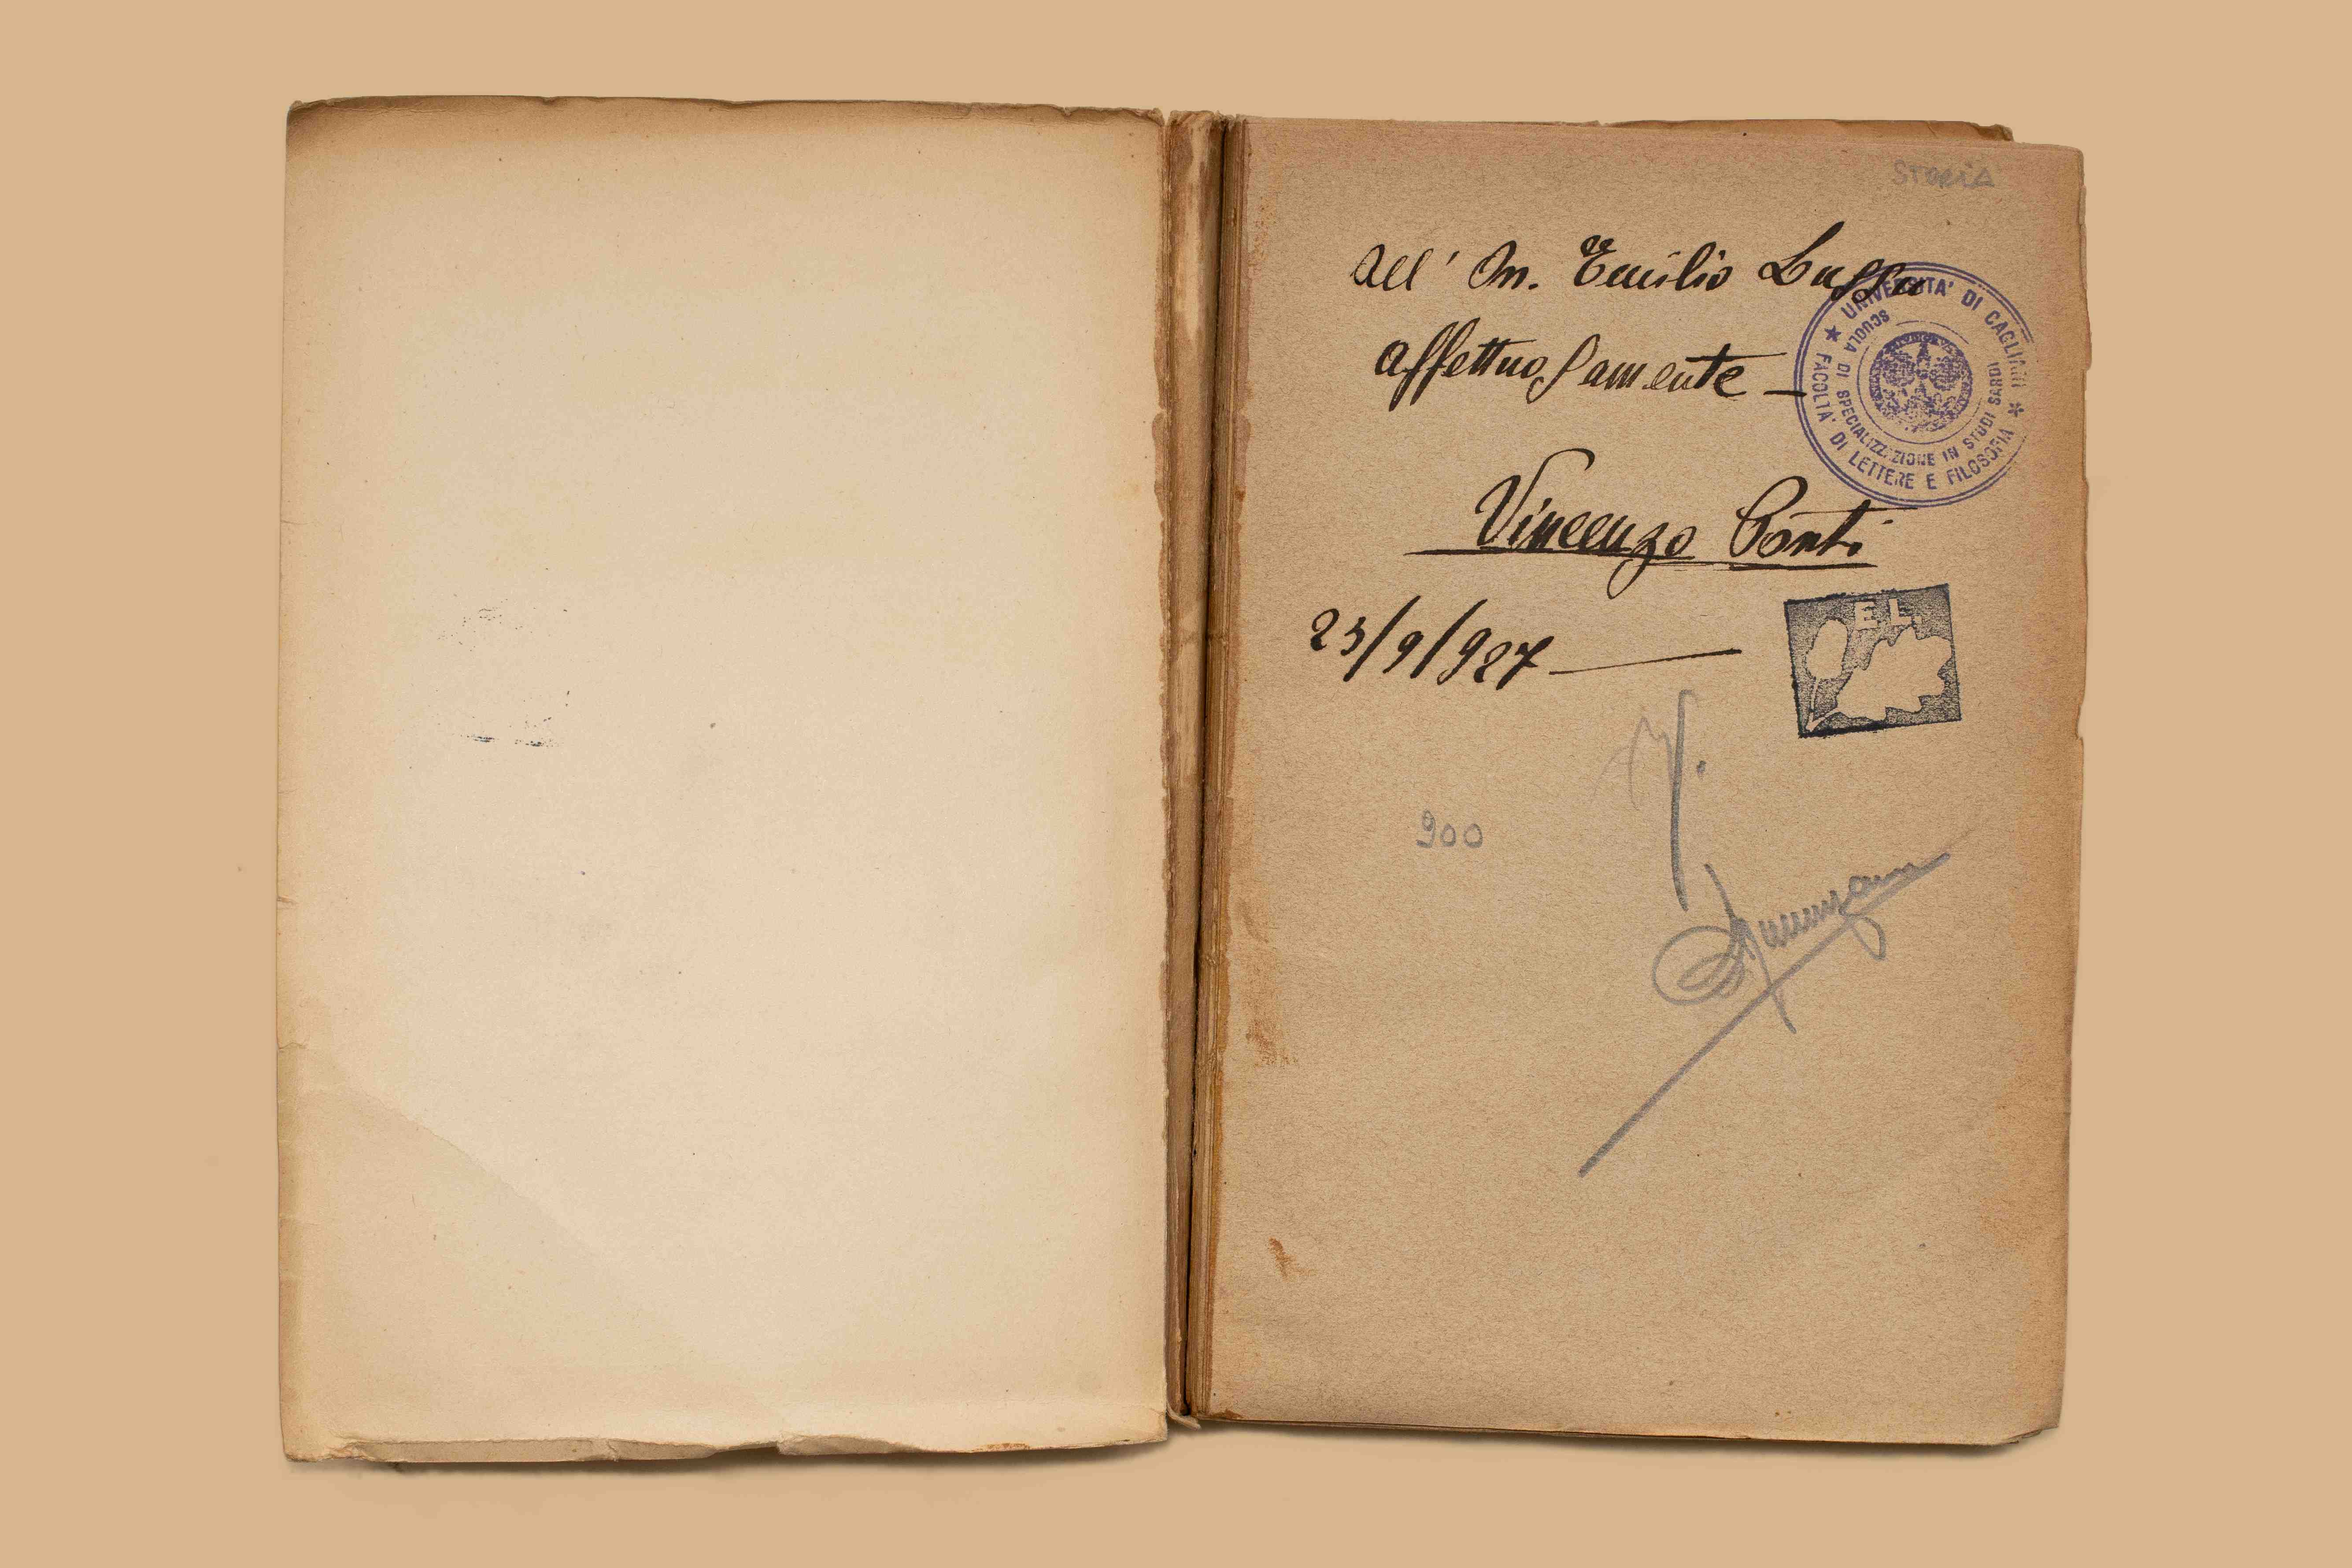 STORIA
All' On. Emilio Lussu
affettuosamente —
UNIVERSITA' DI CAGLIARI
FACOLTA' DI LETTERE E FILOSOFIA
SCUOLA DI SPECIALIZZAZIONE IN STUDI SARDI
Vincenzo Conti
23/9/927
E L
900